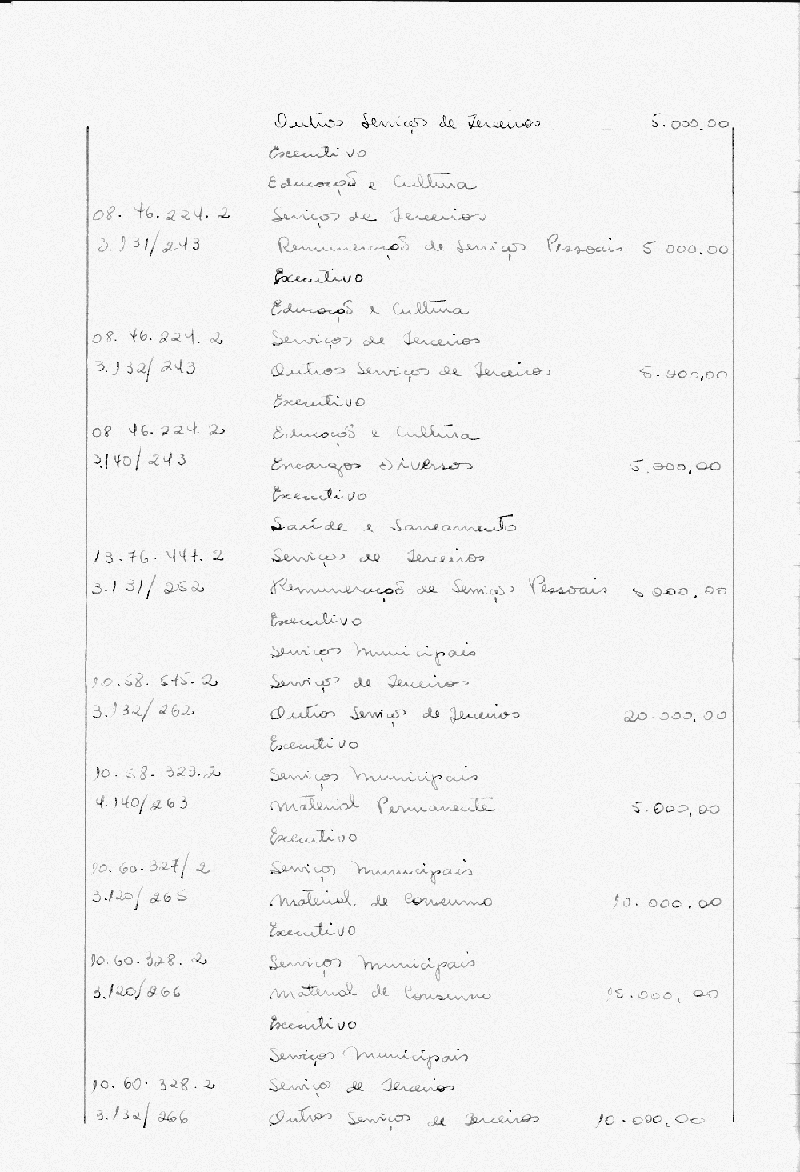 Outros Serviços de Terceiros 5.000,00
Executivo
Educação e Cultura
08. 46. 224. 2 Serviços de Terceiros
3.131/243 Remuneração de Serviços Pessoais 5 000.00
Executivo
Educação e Cultura
08. 46. 224. 2 Serviços de Terceiros
3.132/243 Outros Serviços de Terceiros 5.000,00
Executivo
08 46. 224. 2 Educação e Cultura
3.140/243 Encargos Diversos 5.000,00
Executivo
Saúde e Saneamento
13. 76. 447. 2 Serviços de Terceiros
3.131/252 Remuneração de Serviços Pessoais 000,00
Executivo
Serviços Municipais
10. 58. 575. 2 Serviços de Terceiros
3.132/262 Outros Serviços de Terceiros 20.000,00
Executivo
10. 58. 323. 2 Serviços Municipais
4.140/263 Material Permanente 5.000,00
Executivo
10. 60. 327/ 2 Serviços Municipais
3.120/265 Material de Consumo 10.000.00
Executivo
10. 60. 328. 2 Serviços Municipais
3.120/266 Material de Consumo 15.000,00
Executivo
Serviços Municipais
10. 60. 328. 2 Serviço de Terceiros
3.132/266 Outros Serviços de Terceiros 10.000,00